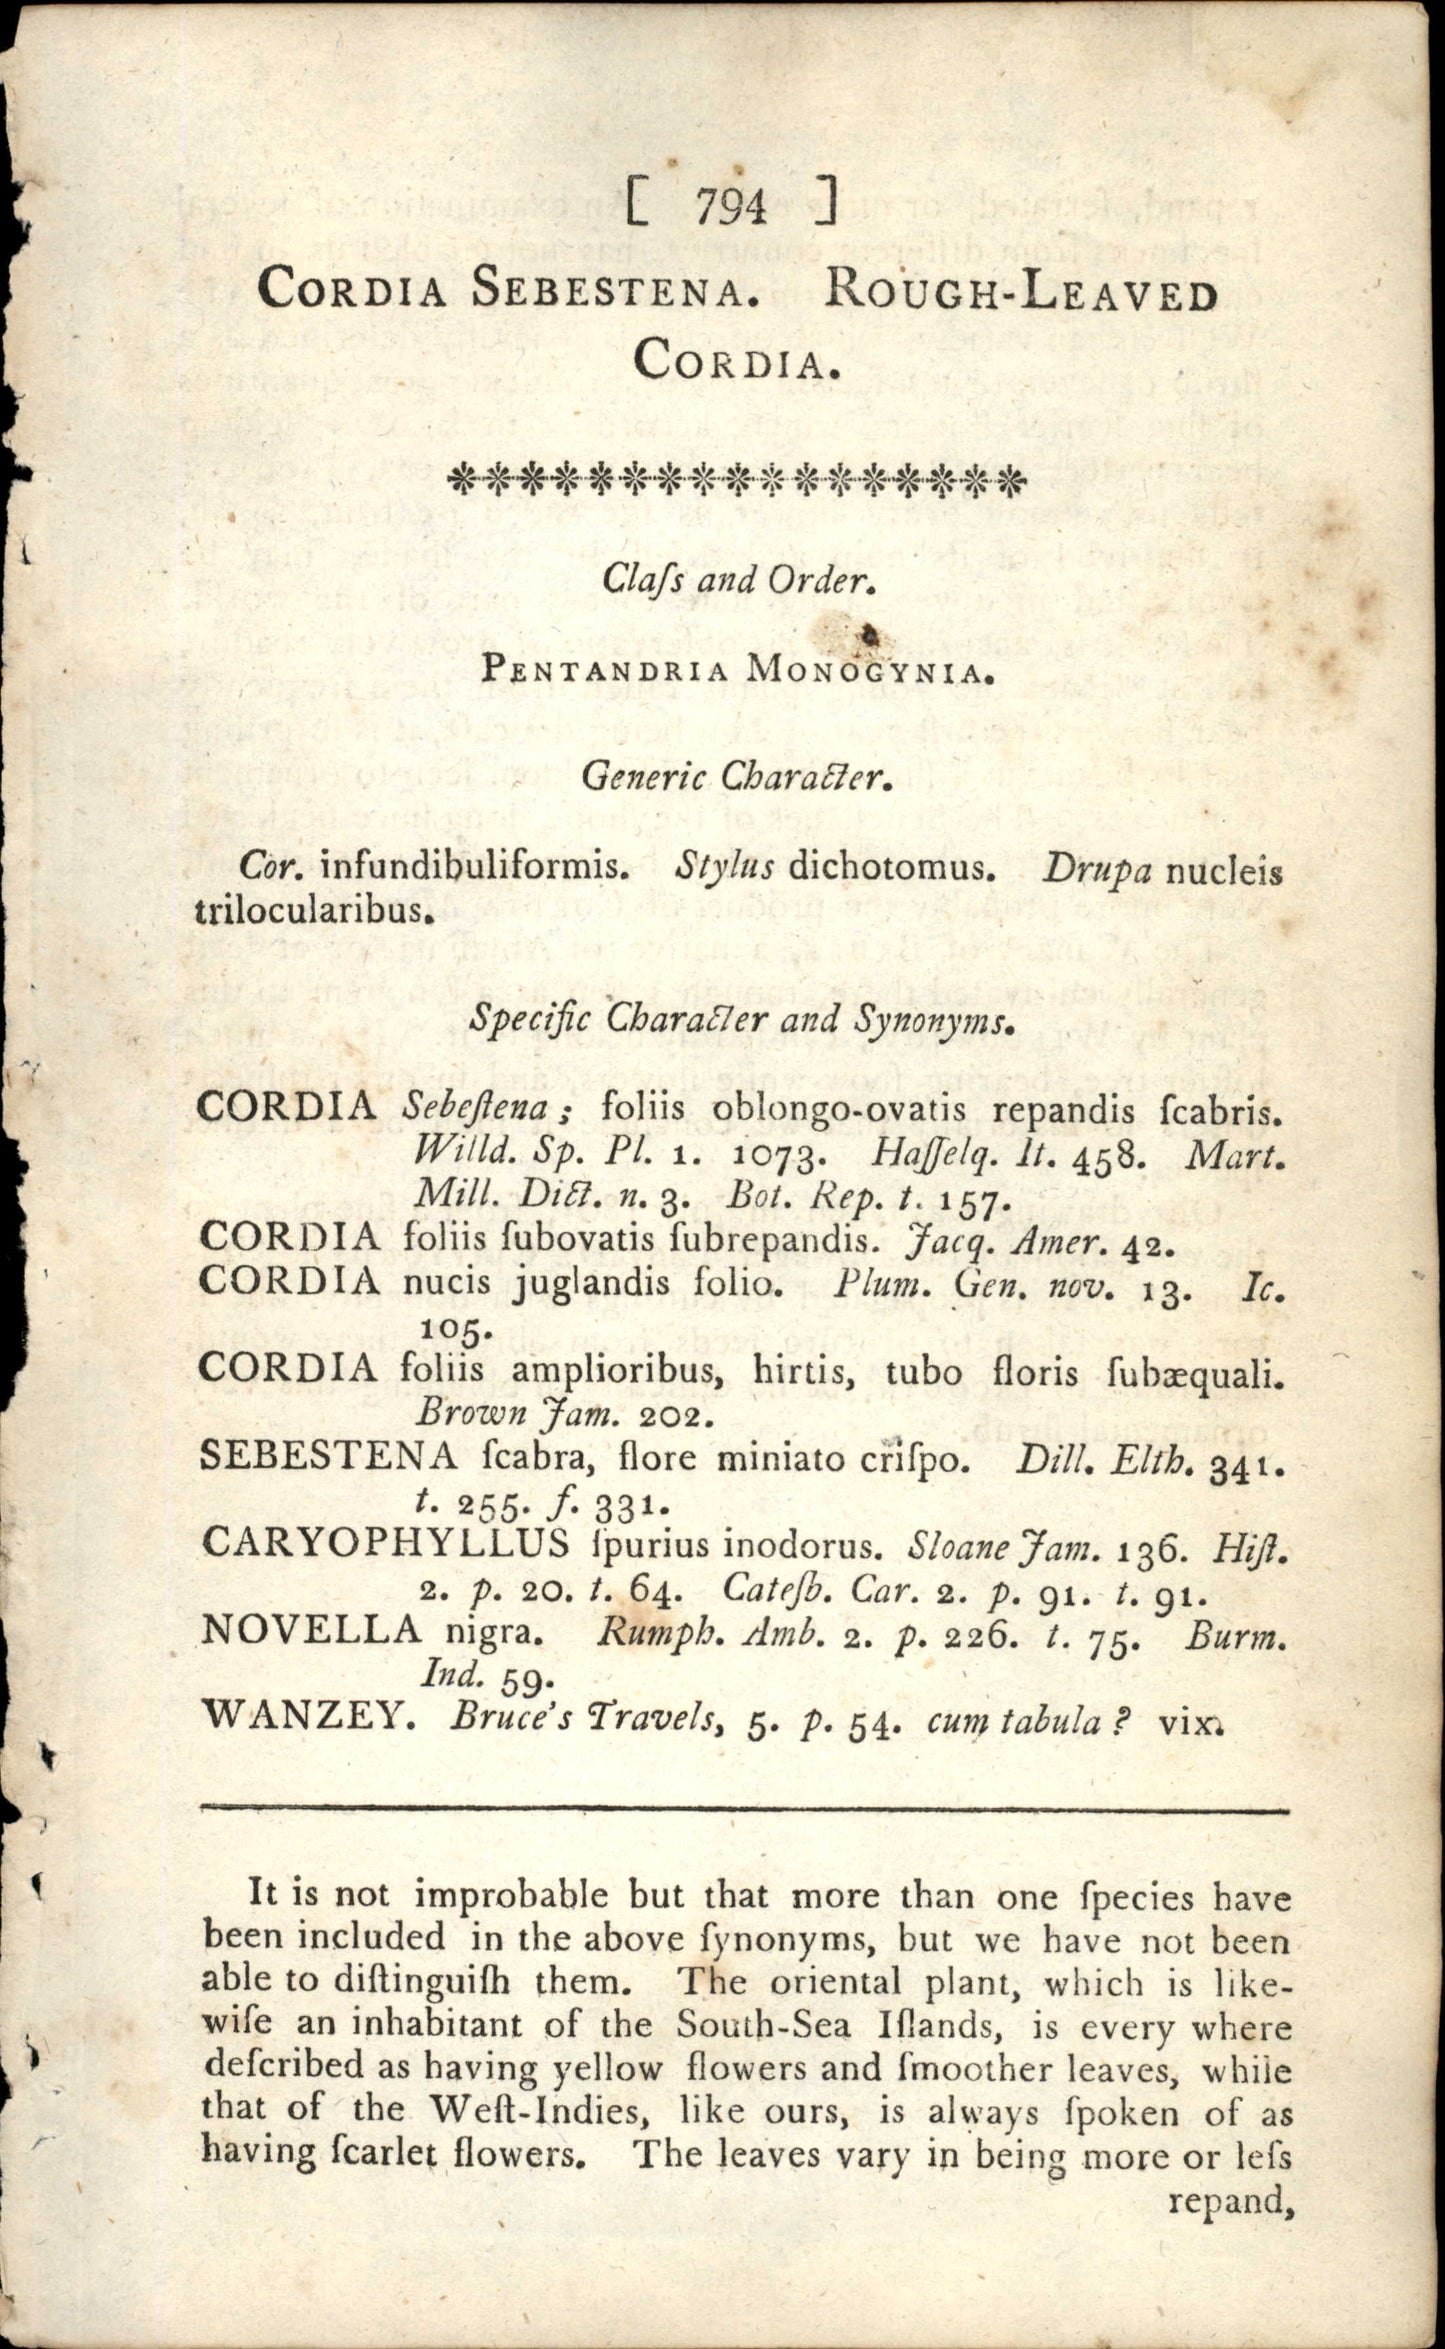 [ 794 ]
CORDIA SEBESTENA. ROUGH-LEAVED
CORDIA.
Claſs and Order.
PENTANDRIA MONOGYNIA.
Generic Character.
Cor. infundibuliformis. Stylus dichotomus. Drupa nucleis
trilocularibus.
Specific Character and Synonyms.
CORDIA Sebeſtena; foliis oblongo-ovatis repandis ſcabris.
Willd. Sp. Pl. 1. 1073. Haſſelq. It. 458. Mart.
Mill. Dict. n. 3. Bot. Rep. t. 157.
CORDIA foliis ſubovatis ſubrepandis. Jacq. Amer. 42.
CORDIA nucis juglandis folio. Plum. Gen. nov. 13. Ic.
105.
CORDIA foliis amplioribus, hirtis, tubo floris ſubæquali.
Brown Jam. 202.
SEBESTENA ſcabra, flore miniato criſpo. Dill. Elth. 341.
t. 255. f. 331.
CARYOPHYLLUS ſpurius inodorus. Sloane Jam. 136. Hiſt.
2. p. 20. t. 64. Cateſb. Car. 2. p. 91. t. 91.
NOVELLA nigra. Rumph. Amb. 2. p. 226. t. 75. Burm.
Ind. 59.
WANZEY. Bruce's Travels, 5. p. 54. cum tabula? vix.
It is not improbable but that more than one ſpecies have
been included in the above ſynonyms, but we have not been
able to diſtinguiſh them. The oriental plant, which is like-
wiſe an inhabitant of the South-Sea Iſlands, is every where
deſcribed as having yellow flowers and ſmoother leaves, while
that of the Weſt-Indies, like ours, is always ſpoken of as
having ſcarlet flowers. The leaves vary in being more or leſs
repand,